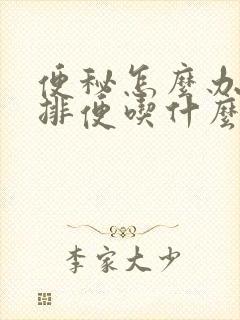 便秘怎麼办
排便喫什麼
李家大少